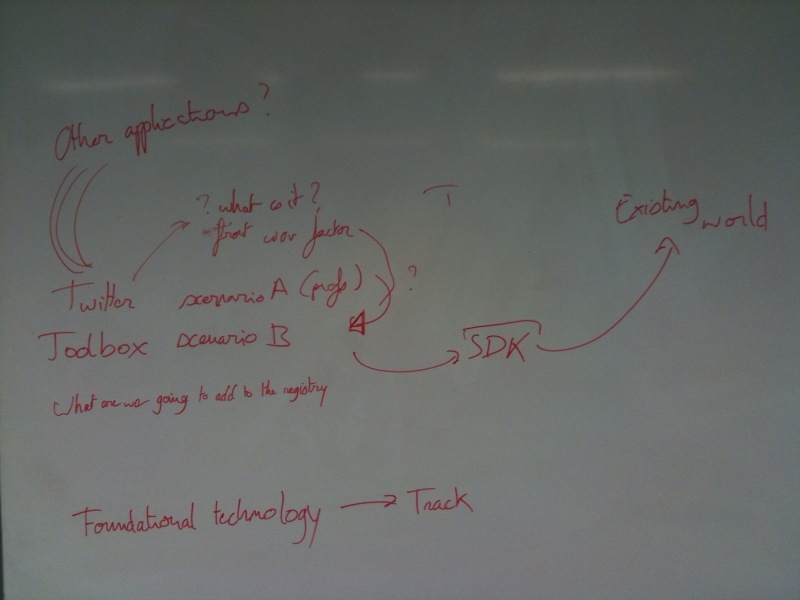 Other applications?
? what is it?
first wow factor
T
Existing world
Twitter scenario A (profs) ?
Toolbox scenario B
SDK
What are we going to add to the registry
Foundational technology → Track